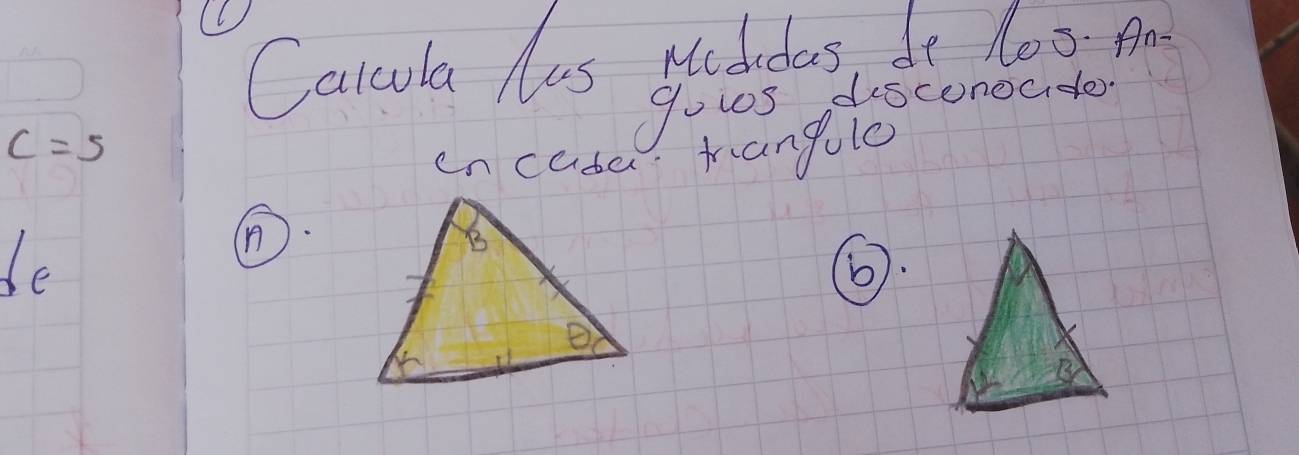 ①
Calcula las Medidas de los An-
gulos desconocido.
en cada. triangulo
C = 5
de
Ⓐ.
B
θ
ⓑ.
B